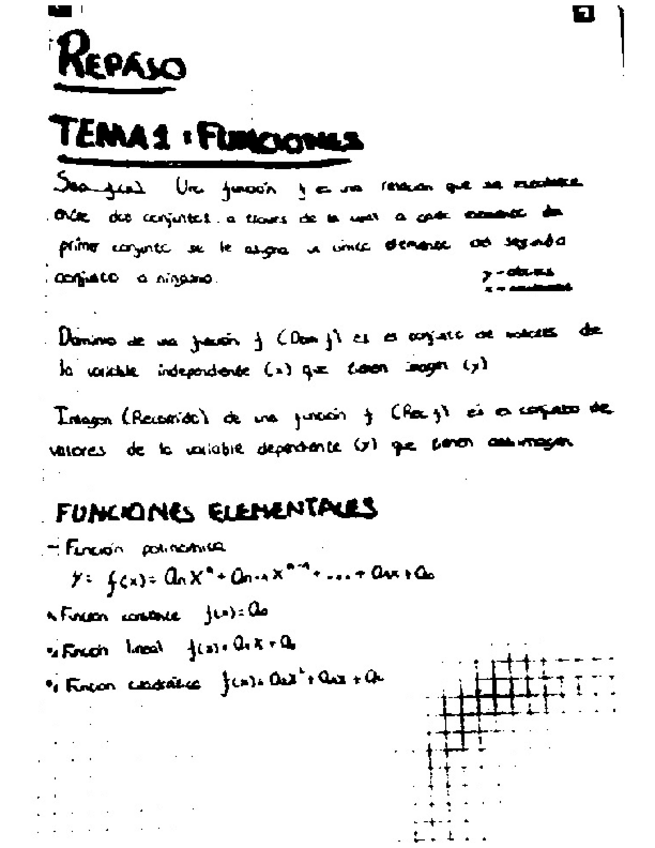 REPASO
TEMA 1: FUNCIONES
Sea f(x) Una función f es una relación que se establece
entre dos conjuntos a traves de la cual a cada elemento del
primer conjunto se le asigna un único elemento del segundo
conjunto o ninguno.
y -
x -
Dominio de una función f (Dom f) es el conjunto de valores de
la variable independiente (x) que tienen imagen (y)
Imagen (Recorrido) de una función f (Rec f) es el conjunto de
valores de la variable dependiente (y) que tienen antiimagen
FUNCIONES ELEMENTALES
- Función polinómica
y = f(x) = anxⁿ + an-1xⁿ⁻¹ + ... + a1x + a0
Función constante f(x) = a0
Función lineal f(x) = a1x + a0
Función cuadrática f(x) = a2x² + a1x + a0